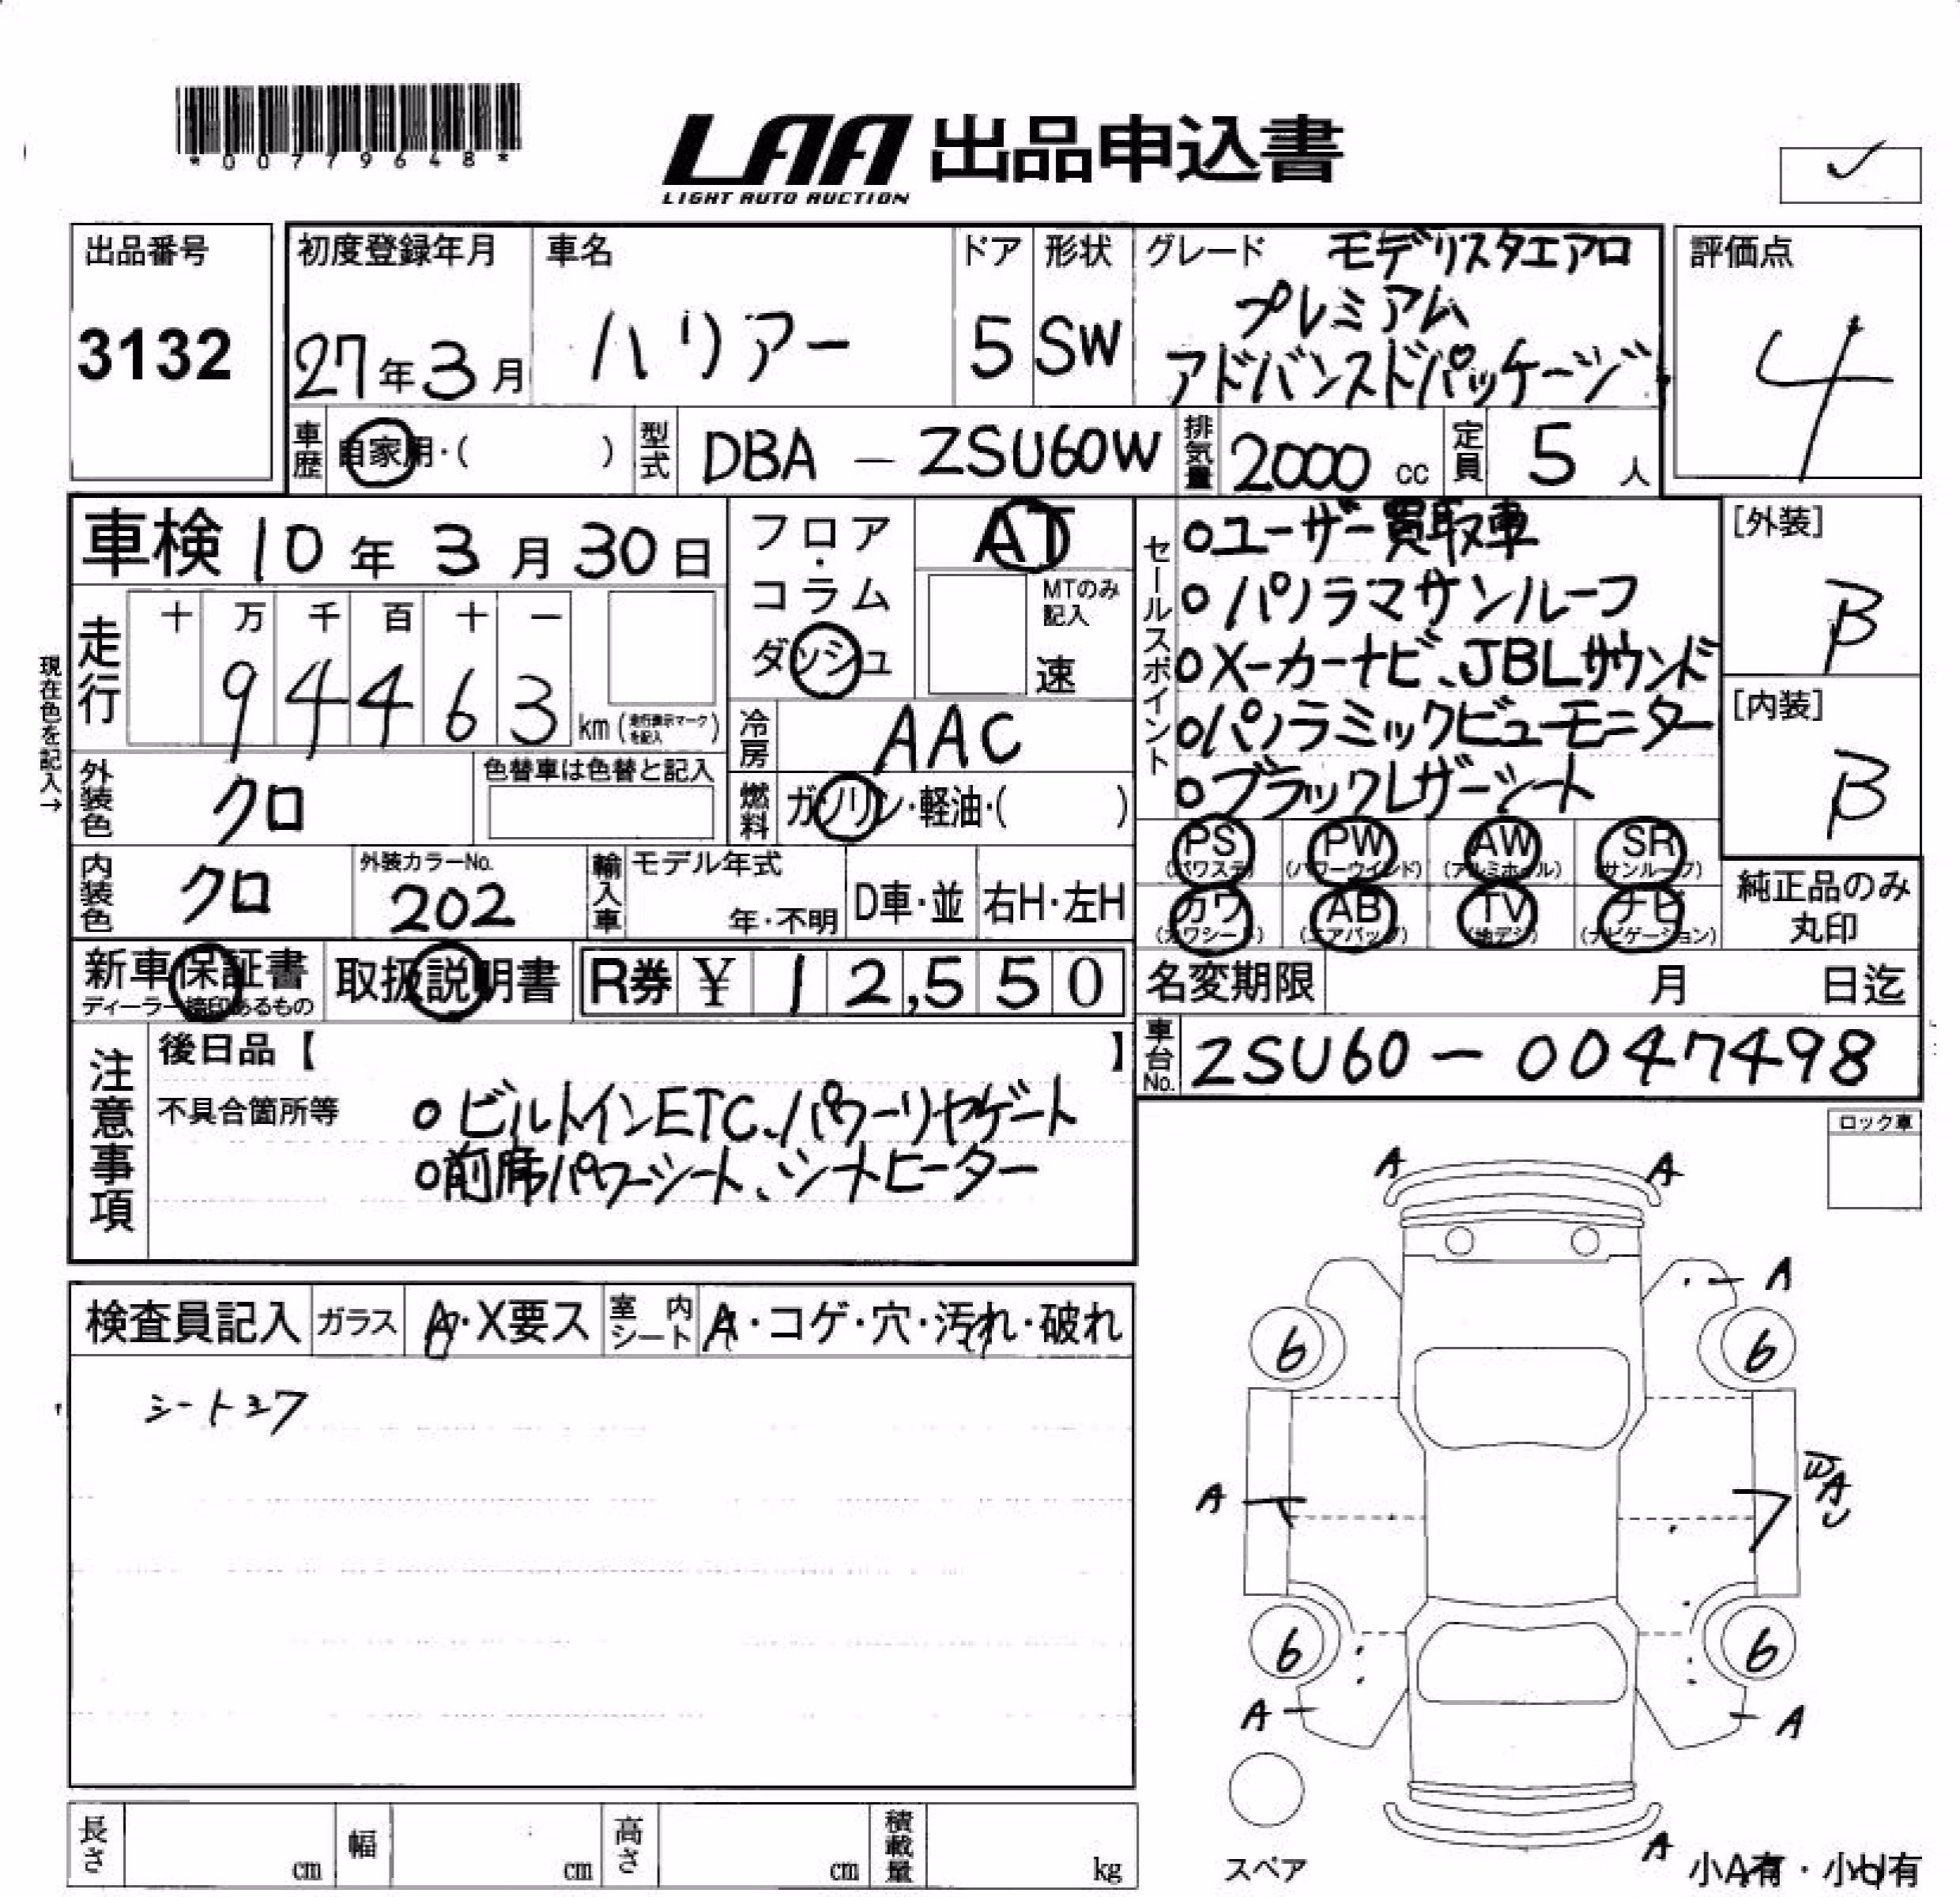 *00779648*
LAA 出品申込書
LIGHT AUTO AUCTION
✓
出品番号
3132
初度登録年月
27年3月
車名
ハリアー
ドア
5
形状
SW
グレード モデリスタエアロ
プレミアム
アドバンスドパッケージ
評価点
4
車歴 自家用・( )
型式 DBA - ZSU60W
排気量 2000 cc
定員 5 人
車検 10年3月30日
フロア・コラム
ダッシュ
AT
MTのみ記入
速
セールスポイント
○ユーザー買取車
○パノラマサンルーフ
○メーカーナビ、JBLサウンド
○パノラミックビューモニター
○ブラックレザーシート
[外装]
B
[内装]
B
現在色を記入→
走行
十 万 千 百 十 一
9 4 4 6 3
km (走行表示マークを記入)
冷房 AAC
外装色 クロ
色替車は色替と記入
燃料 ガソリン・軽油・( )
内装色 クロ
外装カラーNo.
202
輸入車 モデル年式
年・不明
D車・並
右H・左H
PS (パワステ)
PW (パワーウインド)
AW (アルミホイール)
SR (サンルーフ)
カワ (カワシート)
AB (エアバック)
TV (地デジ)
ナビ (ナビゲーション)
純正品のみ
丸印
新車保証書
ディーラー捺印あるもの
取扱説明書
R券 ¥ 12,550
名変期限 月 日迄
車台No. ZSU60-0047498
注意事項
後日品【 】
不具合箇所等
○ビルトインETC、パワーリヤゲート
○前席パワーシート、シートヒーター
ロック車
検査員記入
ガラス A・X要ス
室内シート A・コゲ・穴・汚れ・破れ
A
A
A
6
6
A
A
6
6
A
A
A
スペア
小A有・小U有
長さ cm
幅 cm
高さ cm
積載量 kg